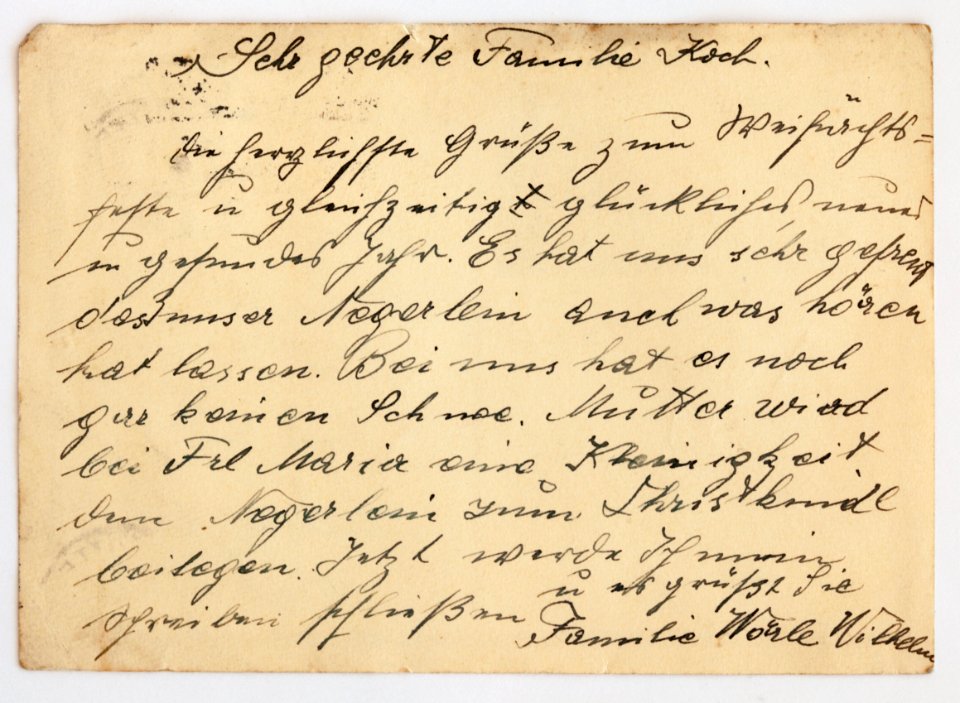 Sehr geehrte Familie Koch.
Die herzlichste Grüße zum Weihnachts=
feste u gleichzeitig glückliches neues
u gesundes Jahr. Es hat uns sehr gefreut
das unser Negerlein auch was hören
hat lassen. Bei uns hat es noch
gar keinen Schnee. Mutter wird
bei Frl Maria eine Kleinigkeit
dem Negerlein zum Christkindl
beilegen. Jetzt werde Ich mein
schreiben schließen u es grüßt Sie
Familie Wörle Wilhelm